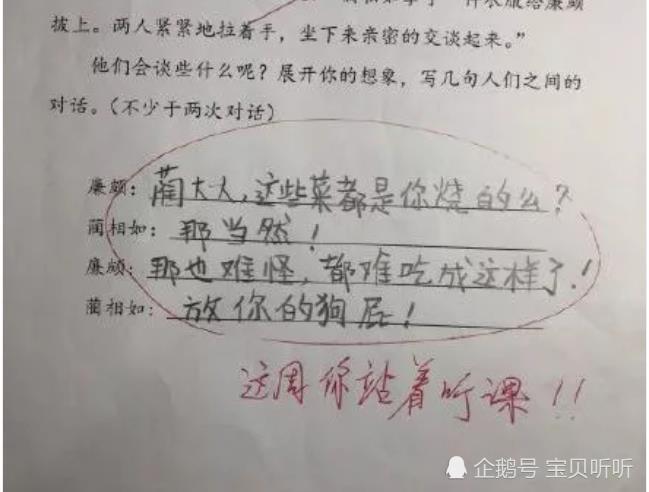 件衣服给廉颇
披上。两人紧紧地拉着手，坐下来亲密的交谈起来。”
他们会谈些什么呢？展开你的想象，写几句人们之间的
对话。（不少于两次对话）
廉颇：蔺大人，这些菜都是你烧的么？
蔺相如：那当然！
廉颇：那也难怪，都难吃成这样了！
蔺相如：放你的狗屁！
这周你站着听课！！
企鹅号 宝贝听听